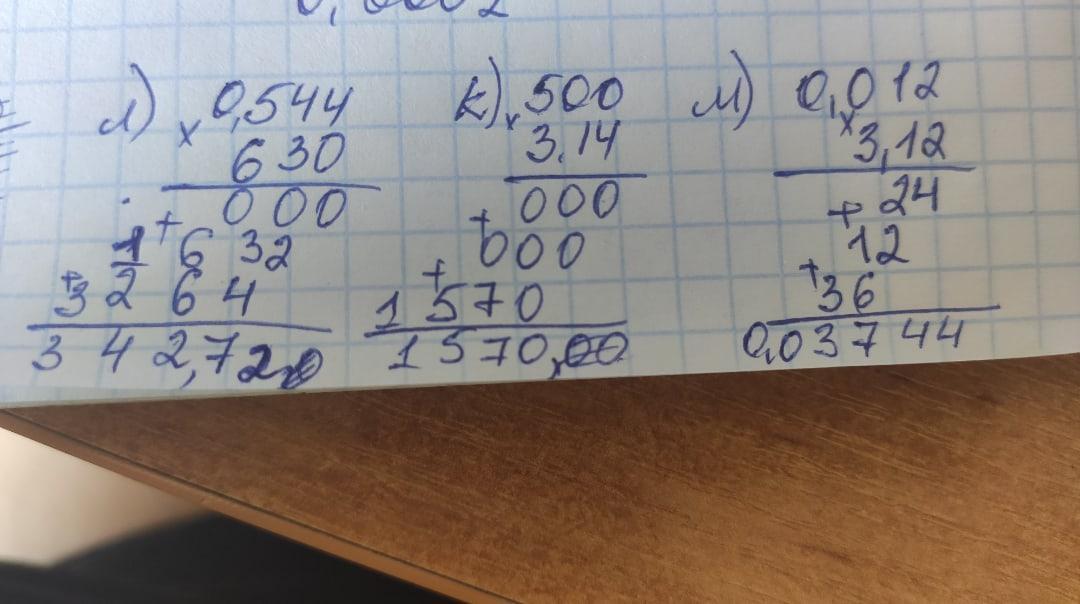 0,0002
л) 0,544
× 630
000
+ 1 6 32
+ 3 2 6 4
3 4 2,7 2 0
к) 500
× 3.14
000
+ 000
+ 1 570
1 570,00
м) 0,012
× 3,12
24
+ 12
+ 36
0,03744